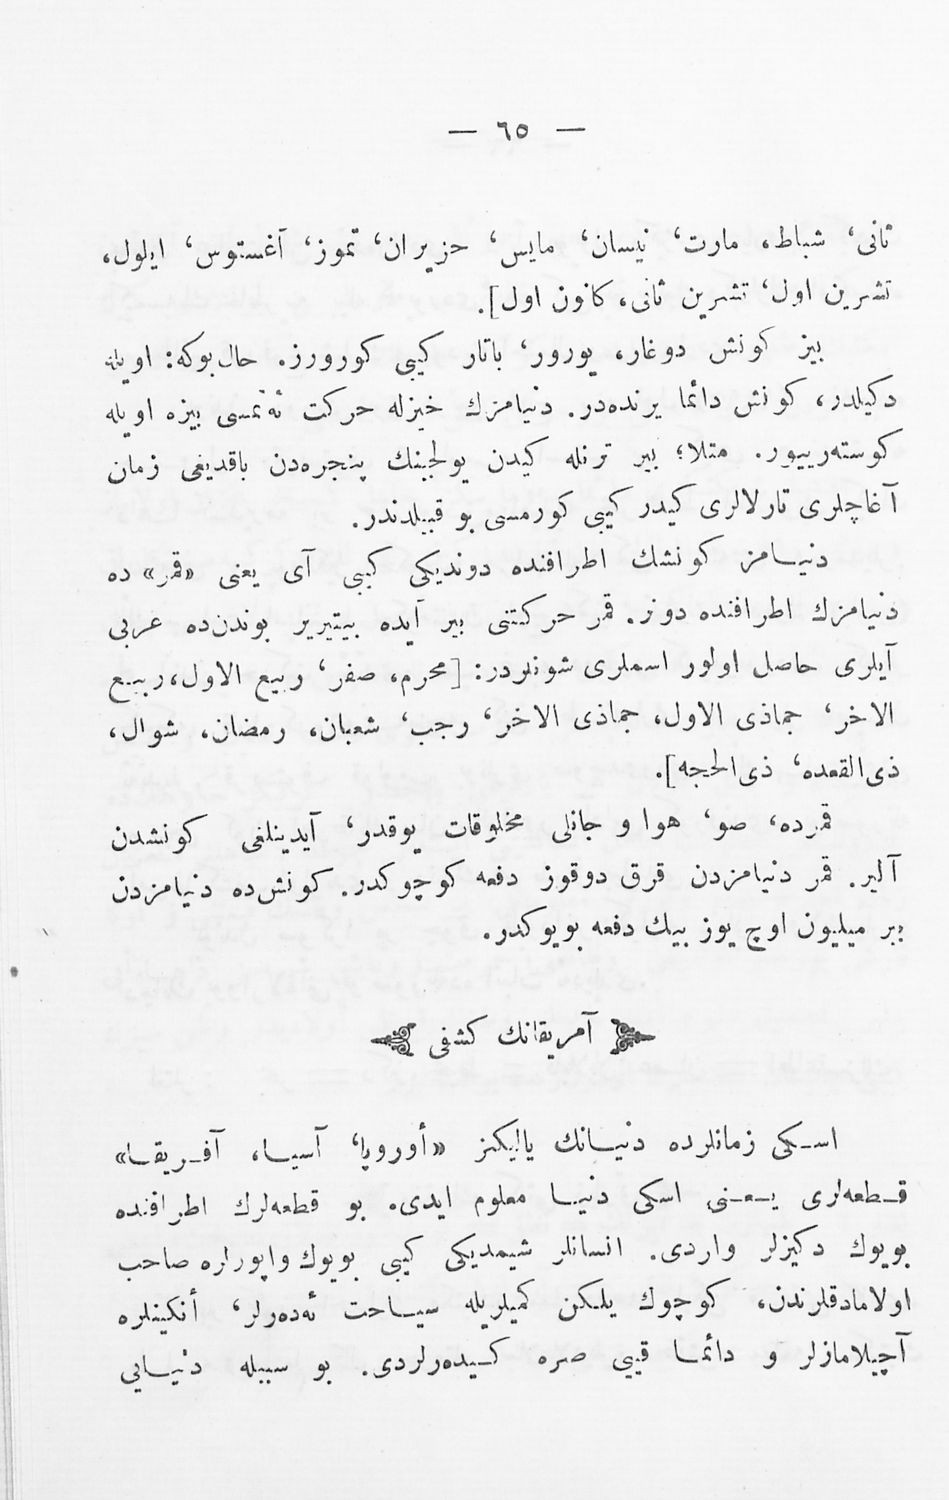 — ٦٥ —
ثانی، شباط، مارت، نیسان، مایس، حزیران، تموز، آغستوس، ایلول،
تشرین اول، تشرین ثانی، كانون اول].
بیز كونش دوغار، یورور، باتار كیبی كورورز. حال‌بوكه: اویله
دكیلدر، كونش دائما یرنده‌در. دنیامزك خیزله حركت ئه‌تمسی بیزه اویله
كوسته‌رییور. مثلا؛ بیر ترنله كیدن یولجینك پنجره‌دن باقدیغی زمان
آغاچلری تارلالری كیدر كیبی كورمسی بو قبیلدندر.
دنیامز كونشك اطرافنده دوندیكی كیبی آی یعنی «قمر» ده
دنیامزك اطرافنده دونر. قمر حركتنی بیر آیده بیتیریر بوندن‌ده عربی
آیلری حاصل اولور اسملری شونلردر: [محرم، صفر، ربیع الاول، ربیع
الاخر، جماذی الاول، جماذی الاخر، رجب، شعبان، رمضان، شوال،
ذی‌القعده، ذی‌الحجه].
قمرده، صو، هوا و جانلی مخلوقات یوقدر، آیدینلغی كونشدن
آلیر. قمر دنیامزدن قرق دوقوز دفعه كوچوكدر. كونش‌ده دنیامزدن
بیر میلیون اوچ یوز بیك دفعه بویوكدر.
آمریقانك كشفی
اسكی زمانلرده دنیانك یالیكنز «أوروپا، آسیا، آفریقا»
قطعه‌لری یعنی اسكی دنیا معلوم ایدی. بو قطعه‌لرك اطرافنده
بویوك دكیزلر واردی. انسانلر شیمدیكی كیبی بویوك واپورلره صاحب
اولامادقلرندن، كوچوك یلكن كمیلریله سیاحت ئه‌ده‌رلر، أنكینلره
آچیلامازلر و دائما قییی صره كیده‌رلردی. بو سببله دنیایی